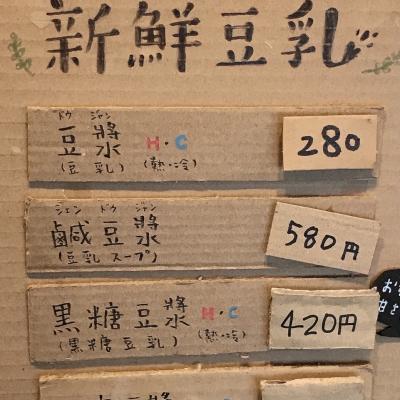 新鮮豆乳
ドウ ジャン
豆漿 H・C 280
(豆乳) (熱・冷)
シェン ドウ ジャン
鹹豆漿 580円
(豆乳スープ)
黒糖豆漿 H・C 420円
(黒糖豆乳) (熱・冷)